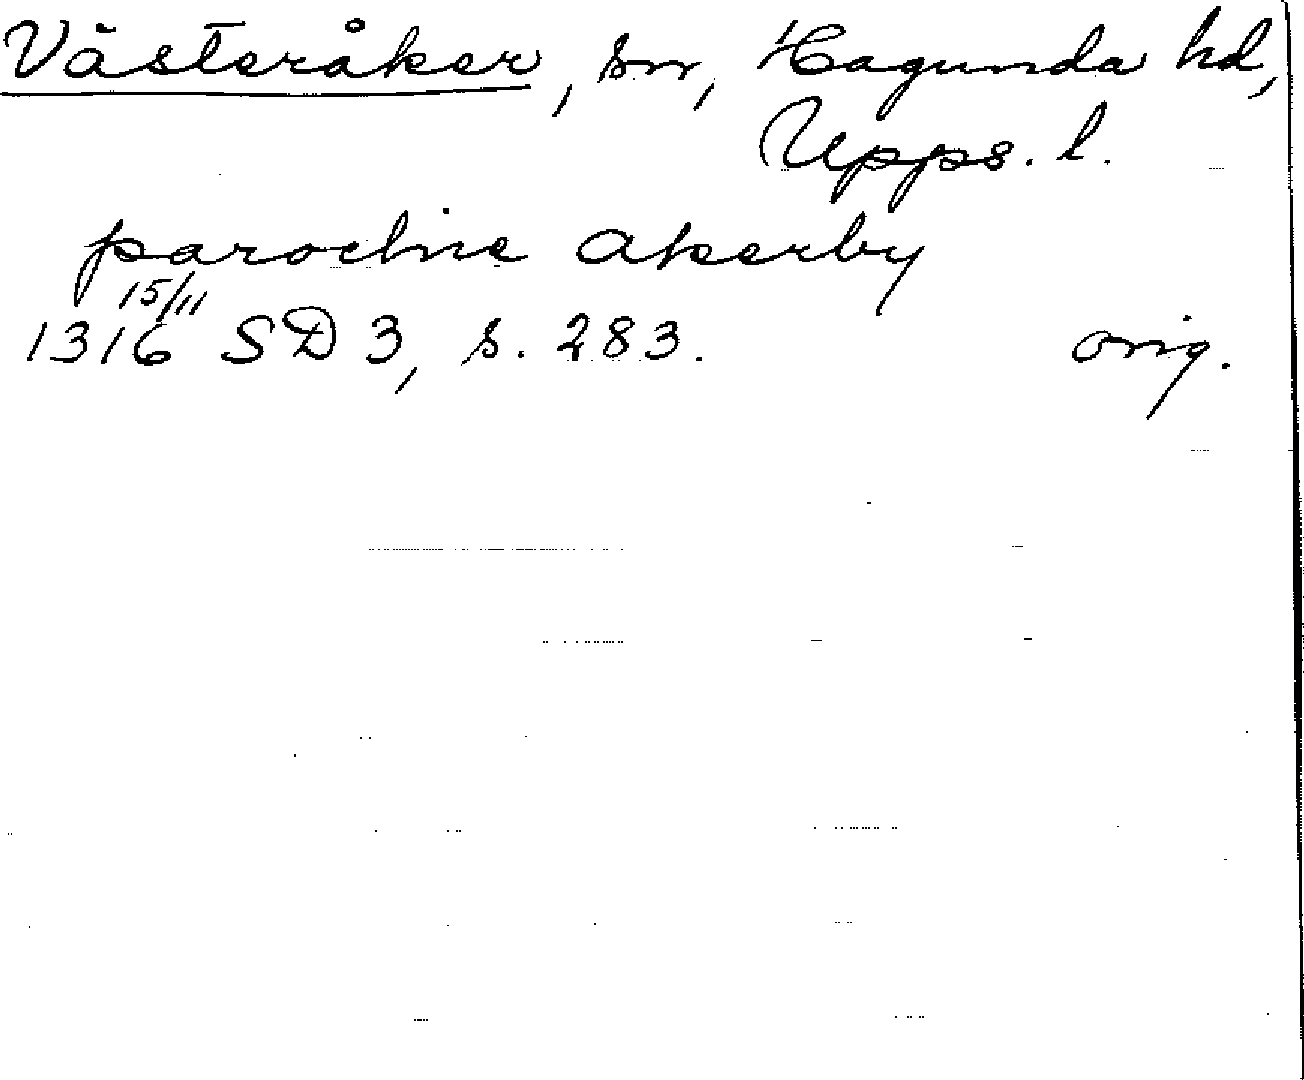 Västeråker, sn, Hagunda hd,
Upps. l.
parochie akerby
15/11
1316 SD 3, s. 283. orig.